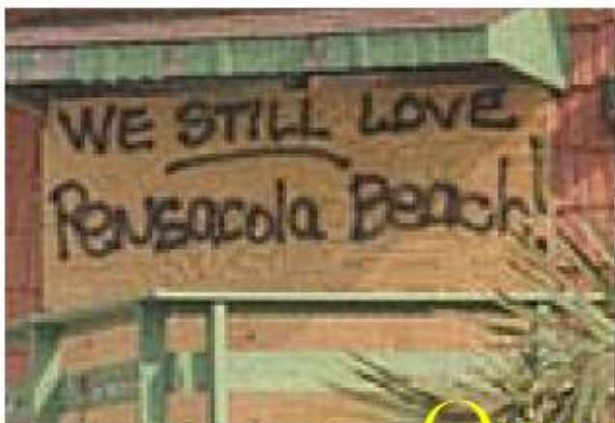 WE STILL LOVE
Pensacola Beach!